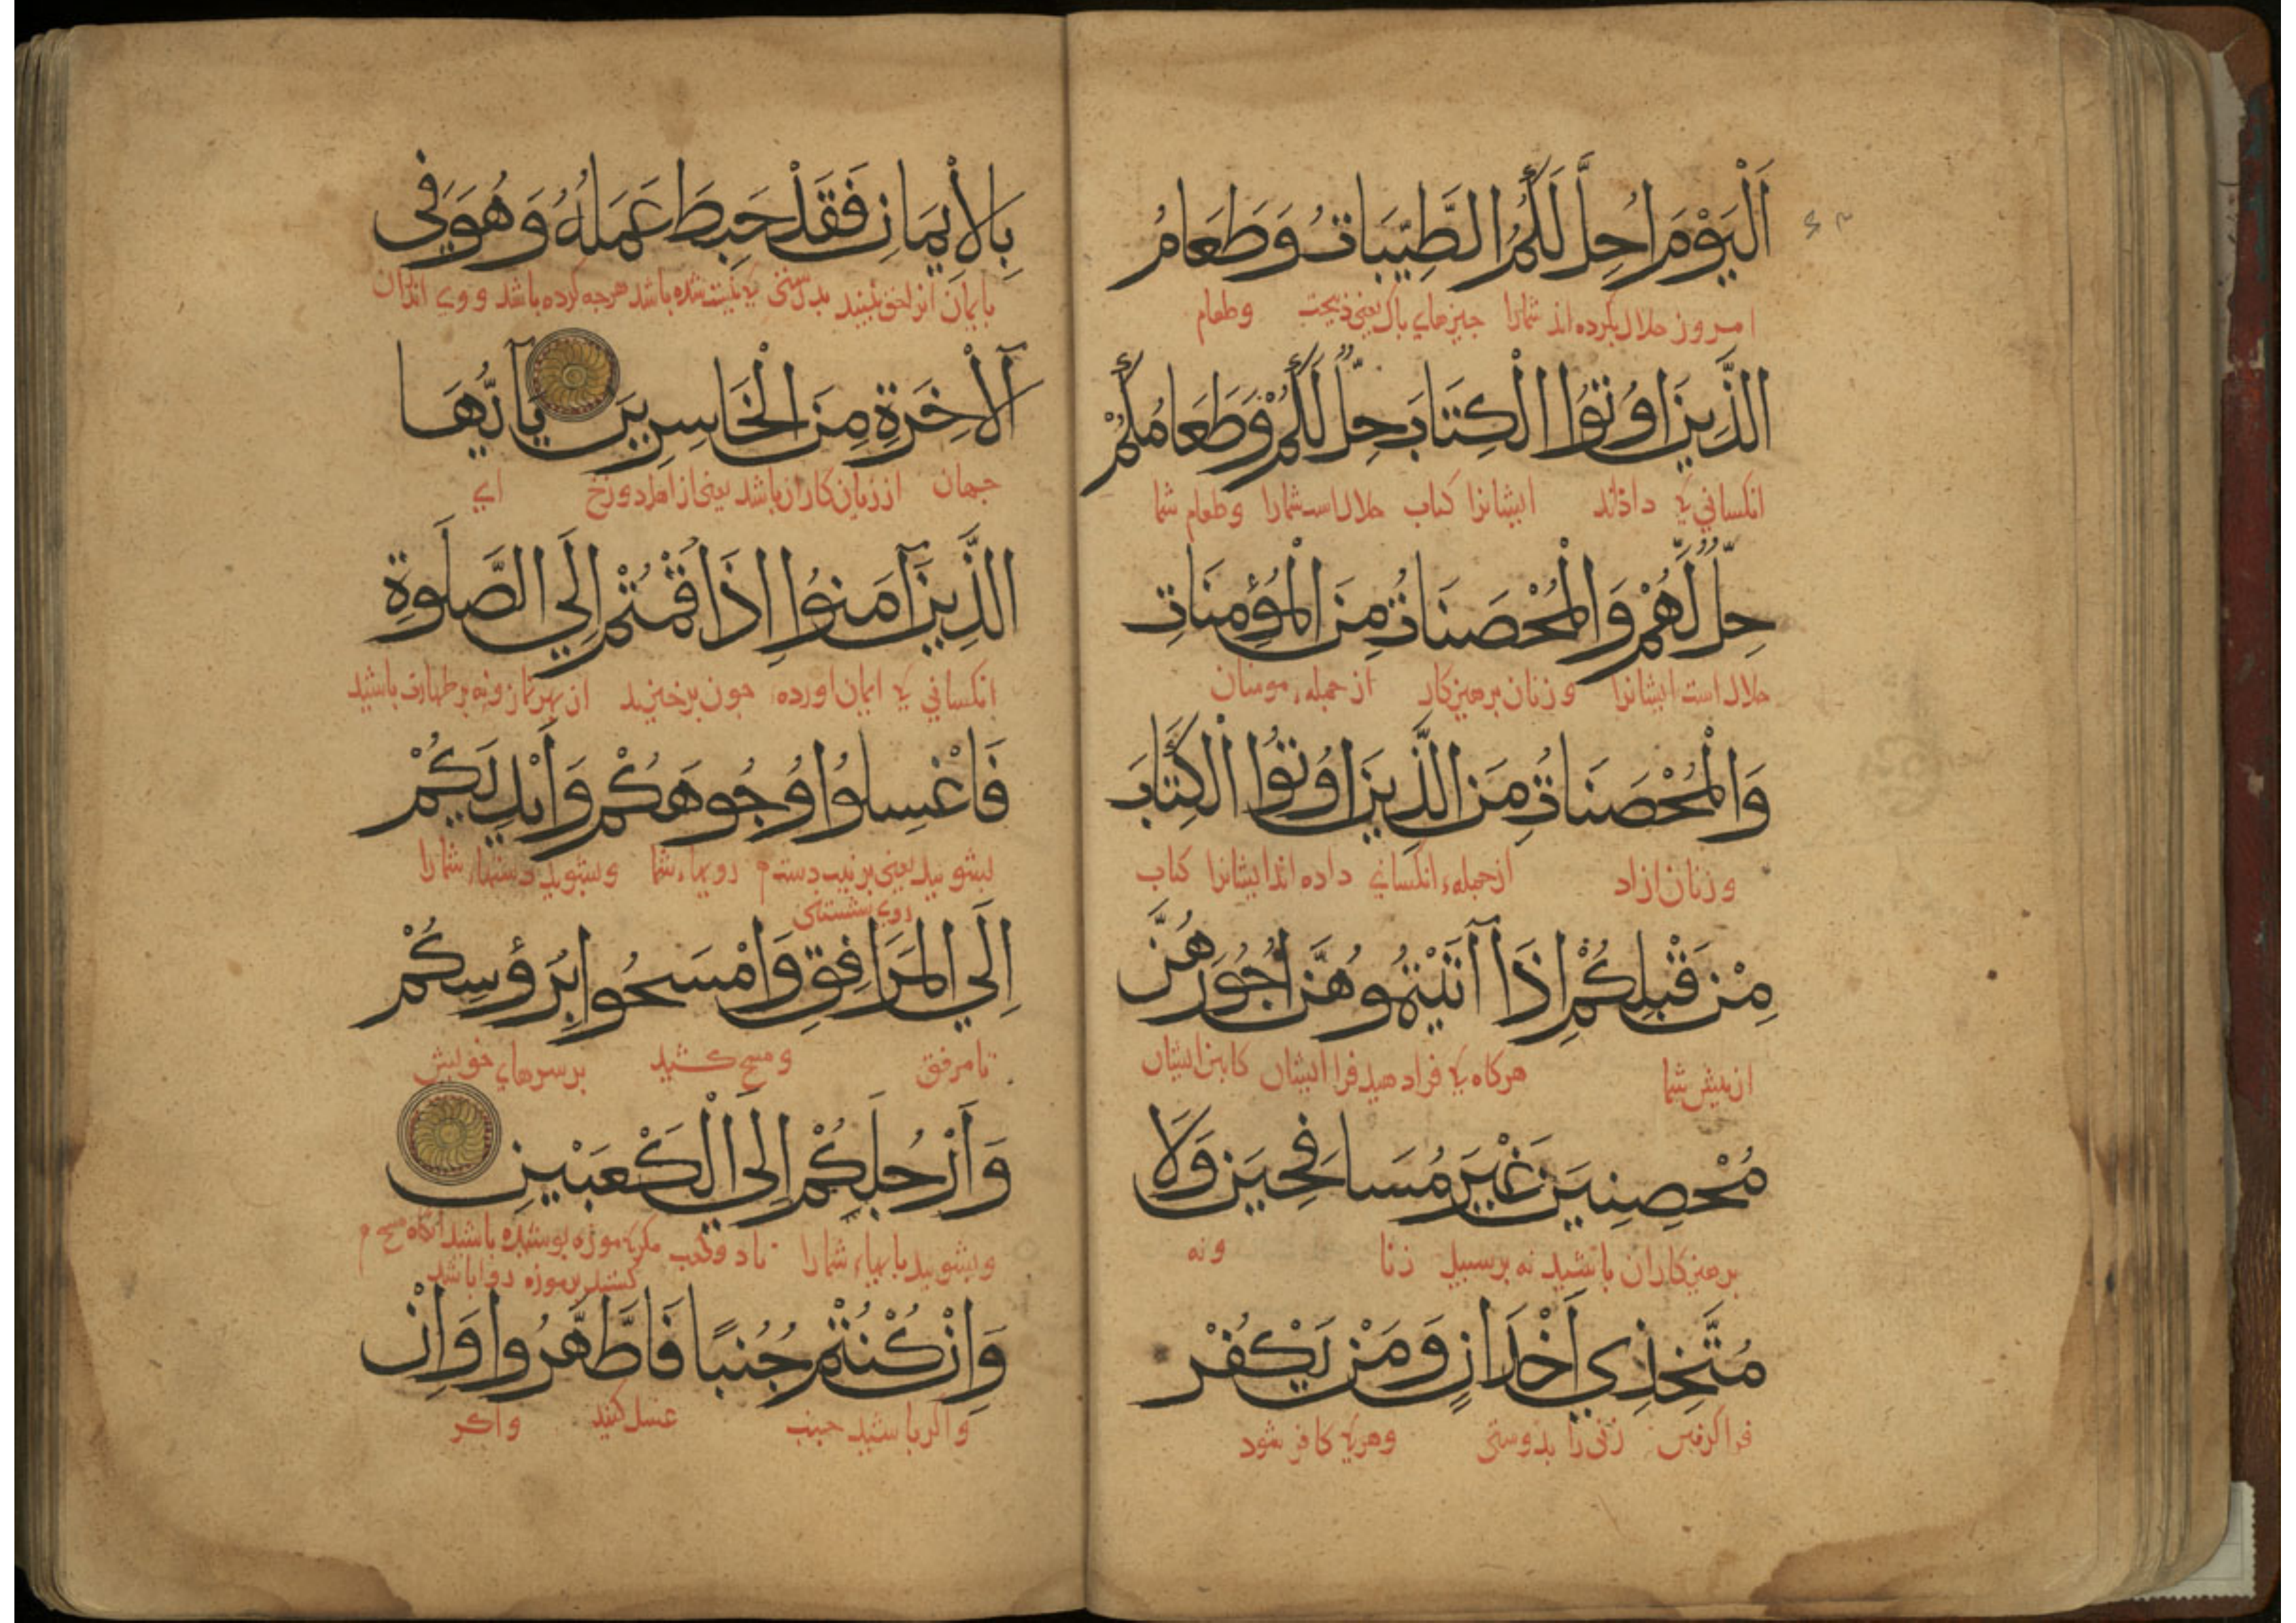 اَلْيَوْمَ اُحِلَّ لَكُمُ الطَّيِّبَاتُ وَطَعَامُ
امروز حلال کرده اند شمارا جیزهاي باك یعنی ذبیحت وطعام
الَّذِينَ اُوتُوا الْكِتَابَ حِلٌّ لَكُمْ وَطَعَامُكُمْ
انکسانی که داذند ایشانرا کتاب حلال است شمارا وطعام شما
حِلٌّ لَهُمْ وَالْمُحْصَنَاتُ مِنَ الْمُؤْمِنَاتِ
حلال است ایشانرا و زنان برهیزکار از جمله مومنان
وَالْمُحْصَنَاتُ مِنَ الَّذِينَ اُوتُوا الْكِتَابَ
و زنان ازاد از جمله انکسانی داده اند ایشانرا کتاب
مِنْ قَبْلِكُمْ اِذَا آتَيْتُمُوهُنَّ اُجُورَهُنَّ
از بیش شما هرکاه که فرا دهید فرا ایشان کابین ایشان
مُحْصِنِينَ غَيْرَ مُسَافِحِينَ وَلَا
برهیزکاران باشید نه برسبیل زنا و نه
مُتَّخِذِي اَخْدَانٍ وَمَنْ يَكْفُرْ
فراکرفتن زنی را بدوستی وهرکه کافر شود
بِالْاِيمَانِ فَقَدْ حَبِطَ عَمَلُهُ وَهُوَ فِي
بایمان بدرستی که شده باشد هرجه کرده باشد و وي اندران
اَلْآخِرَةِ مِنَ الْخَاسِرِينَ يَآ اَيُّهَا
جهان از زیان کاران باشد یعنی از اهل دوزخ اي
الَّذِينَ آمَنُوا اِذَا قُمْتُمْ اِلَي الصَّلٰوةِ
انکسانی که ایمان اورده جون برخیزید از بهر نماز ونه بر طهارت باشید
فَاغْسِلُوا وُجُوهَكُمْ وَاَيْدِيَكُمْ
بشویید یعنی رویهاء شما و بشویید دستهاء شمارا
روي شستن
اِلَي الْمَرَافِقِ وَامْسَحُوا بِرُؤُسِكُمْ
تا مرفق و مسح کشید بر سرهاي خویش
وَاَرْجُلِكُمْ اِلَي الْكَعْبَيْنِ
و بشویید بایهاء شمارا تا دو کعب مکر که موزه بوشیده باشید انکاه مسح
کشید بر موزه روا باشد
وَاِنْ كُنْتُمْ جُنُبًا فَاطَّهَّرُوا وَاِنْ
و اکر باشید جنب غسل کنید و اکر